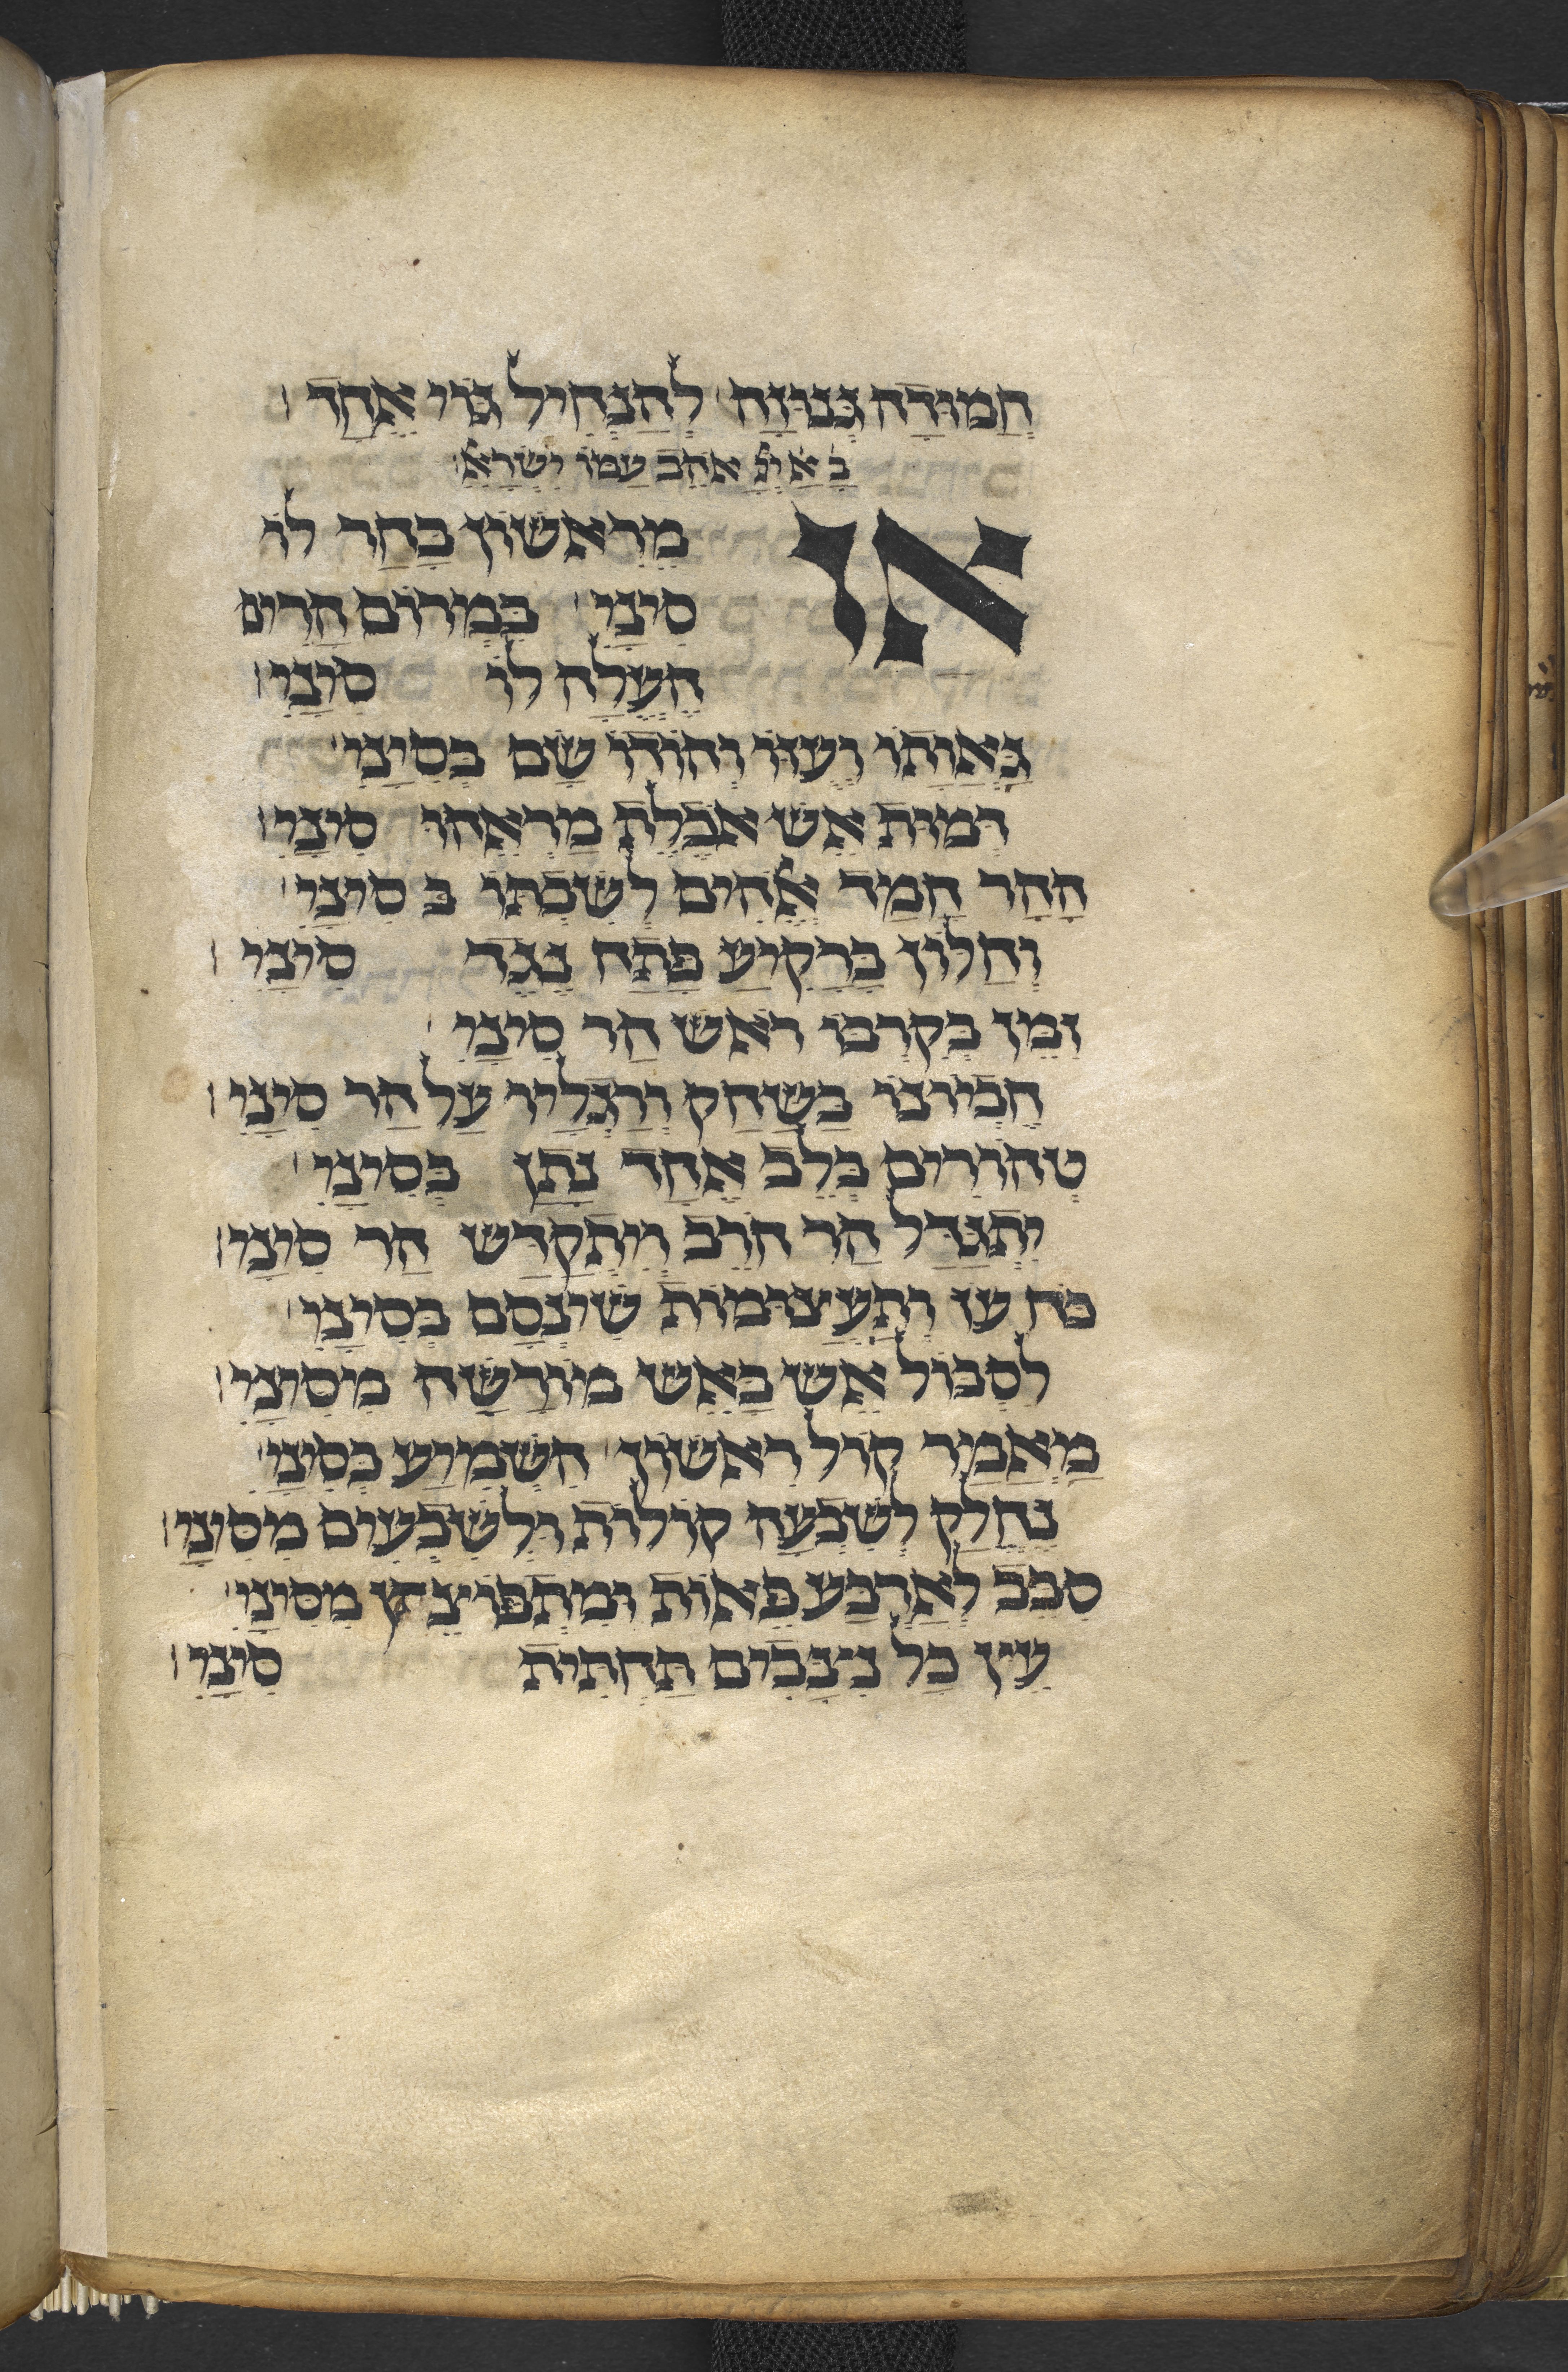 חֲמוּדָה גְּנוּזָה לְהַנְחִיל גּוֹי אֶחָד
בא יי אהב עמו ישרא
אז מֵרִאשׁוֹן בָּחַר לוֹ
סִינַי בִּמְרוֹם הָרִים
הֶעֱלָה לוֹ סִינַי
גַּאֲוָתוֹ וְעֻזּוֹ וְהוֹדוֹ שָׂם בְּסִינַי
דְּמוּת אֵשׁ אֹכֶלֶת מַרְאֵהוּ סִינַי
הָהָר חָמַד אֱלֹהִים לְשִׁבְתּוֹ בְּסִינַי
וְחַלּוֹן בָּרָקִיעַ פָּתַח נֶגֶד סִינַי
זִמֵּן בְּקִרְבּוֹ רֹאשׁ הַר סִינַי
חֶבְיוֹנוֹ בַּשַּׁחַק וְרַגְלָיו עַל הַר סִינַי
טְהוֹרִים בְּלֵב אֶחָד נָתַן בְּסִינַי
יִתְגַּדַּל הַר חֹרֵב וְיִתְקַדַּשׁ הַר סִינַי
כֹּח עֹז וְתַעֲצוּמוֹת שִׁינְּסָם בְּסִינַי
לִסְבּוֹל אֵשׁ בָּאֵשׁ מוֹרָשָׁה מִסִּינַי
מַאֲמַר קוֹל רִאשׁוֹן הִשְׁמִיעַ בְּסִינַי
נֶחֱלַק לְשִׁבְעָה קוֹלוֹת וּלְשִׁבְעִים מִסִּינַי
סִבֵּב לְאַרְבַּע פֵּאוֹת וּמִתְפּוֹצֵץ מִסִּינַי
עֵין כָּל נִיבָּבִים תַּחְתִּית סִינַי